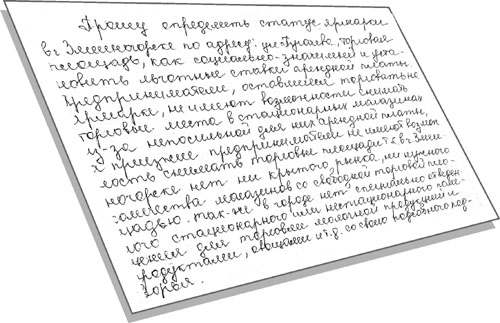 Прошу определить статус ярмарки
в г. Змеиногорске по адресу: ул. Пугачева, торговая
площадь, как социально-значимой и уста-
новить льготные ставки арендной платы.
Предприниматели, оставшиеся торговать на
ярмарке, не имеют возможности снимать
торговые места в стационарных магазинах
из-за непосильной для них арендной платы,
а приезжие предприниматели не имеют возмож-
ность снимать торговые площади т.к. в г. Змеи-
ногорске нет ни крытого рынка, ни нужного
количества магазинов со свободной торговой пло-
щадью. так-же в городе нет специально отведен-
ного стационарного или нестационарного поме-
щения для торговли молочной продукцией и
продуктами, овощами и т.д. со своего подсобного под-
ворья.